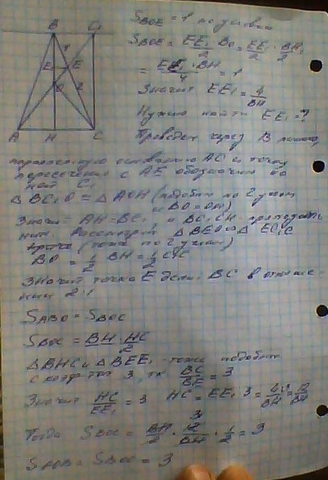 B C₁
E₁ E
1
2
O
A H C
S_BOE = 1 по условию
S_BOE = EE₁/2 · BO = EE₁/2 · BH/2
= EE₁·BH/4 = 1
Значит EE₁ = 4/BH
Нужно найти EE₁ = ?
Проведем через B линию,
параллельную основанию AC и точку
пересечения с AE обозначим
C₁
△BC₁O = △AOH (подобны по 2 углам
и BO = OH)
Значит AH = BC₁ и BC₁CH прямоуголь
ник. Рассмотрим △BEO ∾ △EC₁C
(тоже по 2 углам)
BO = 1/2 BH = 1/2 C₁C
Значит точка E делит BC в отноше
нии 2:1
S_ABO = S_BOC
S_BOC = BH·HC/2
△BHC и △BEE₁ - тоже подобны
с коэф-том 3, тк BC/BE = 3
Значит HC/EE₁ = 3 HC = EE₁·3 = 4·3/BH = 12/BH
Тогда S_BOC = BH/2 · 12/BH · 1/2 = 3
S_AOB = S_BOC = 3